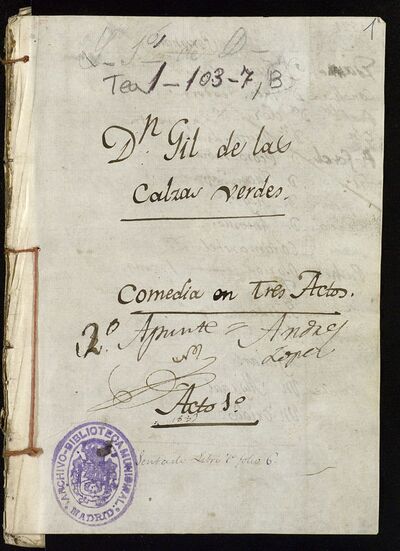 1
Tea 1-103-7, B
Dn Gil de las
Calzas verdes.
Comedia en Tres Actos.
2º Apunte = Andres
Lopez
Acto 1º
Libro 1º folio 6
ARCHIVO-BIBLIOTECA MUNICIPAL
MADRID